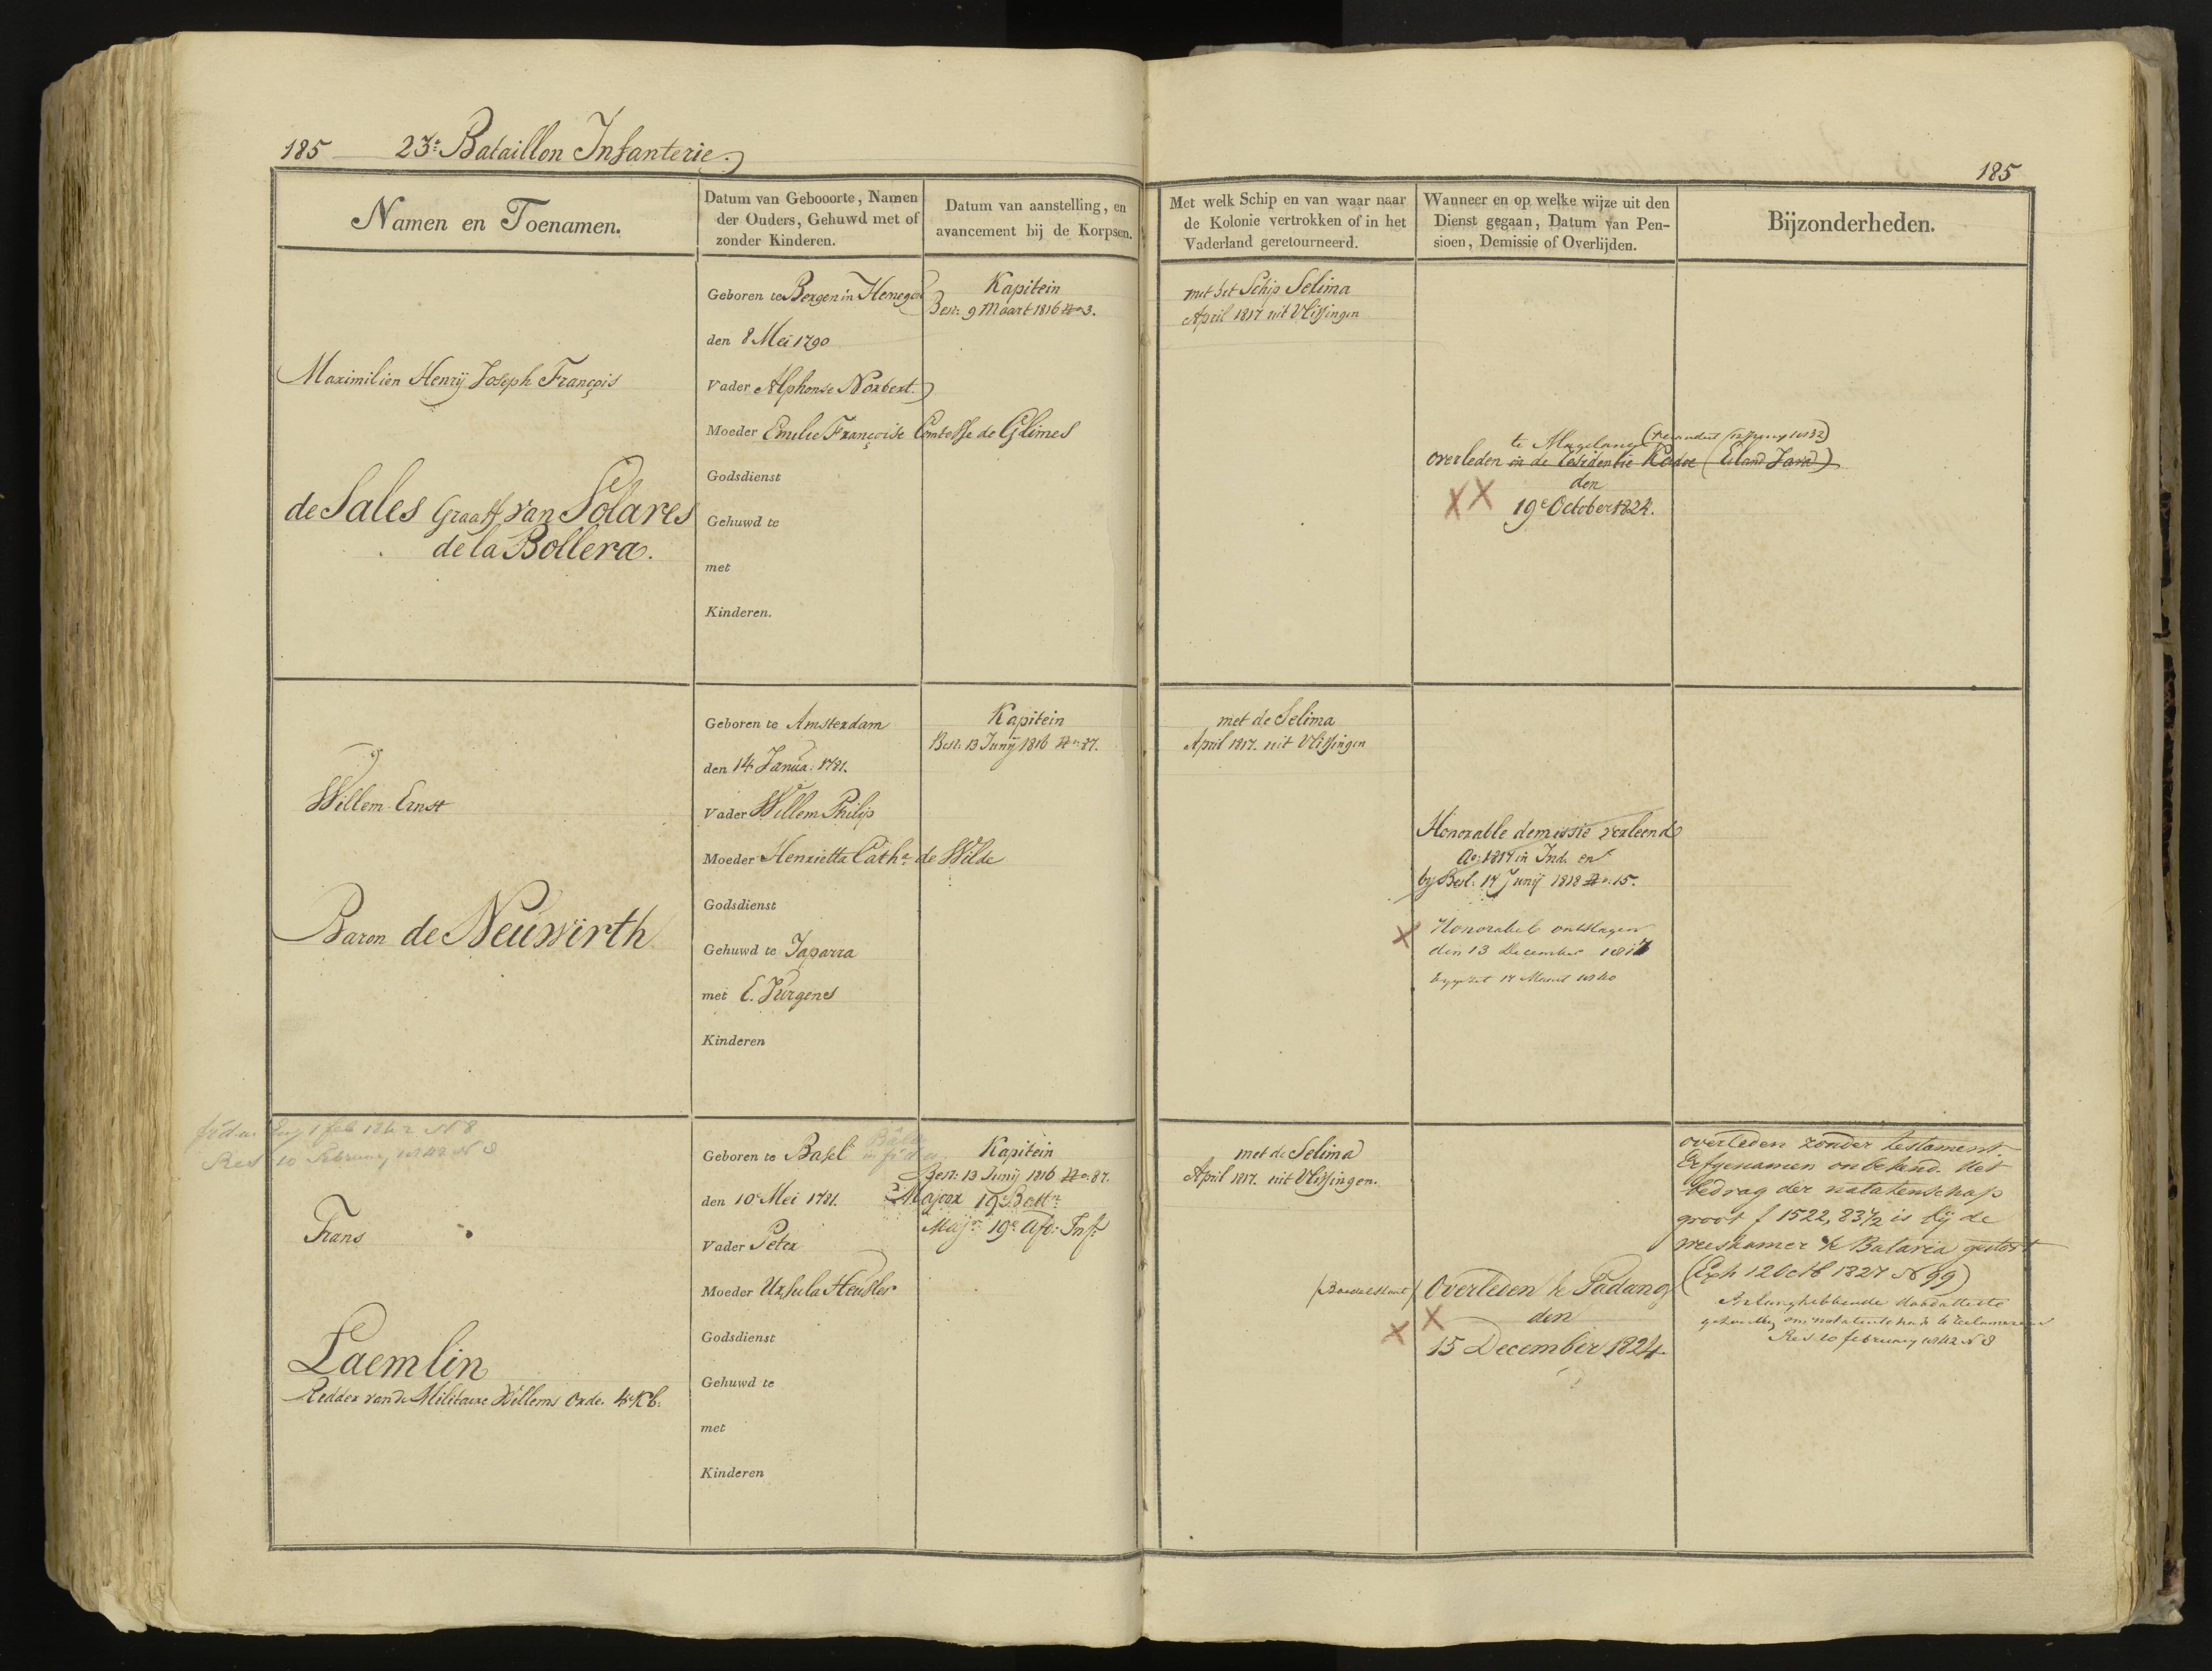 185 23e Bataillon Infanterie.
185
Namen en Toenamen.
Datum van Gebooorte, Namen
der Ouders, Gehuwd met of
zonder Kinderen.
Datum van aanstelling, en
avancement bij de Korpsen.
Met welk Schip en van waar naar
de Kolonie vertrokken of in het
Vaderland geretourneerd.
Wanneer en op welke wijze uit den
Dienst gegaan, Datum van Pen-
sioen, Demissie of Overlijden.
Bijzonderheden.
Maximilien Henrij Joseph François
de Sales Graaff van Solares
de la Bollera.
Geboren te Bergen in Henegou
den 8 Mei 1790
Vader Alphonse Norbert.
Moeder Emelie Françoise Comtesse de Glimes
Godsdienst
Gehuwd te
met
Kinderen.
Kapitein
Besl: 9 Maart 1816 No 3.
met het Schip Selima
April 1817 uit Vlissingen
te Magelang
overleden in de Residentie Kadoe (Eiland Java)
den
XX 19e October 1824.
Willem Ernst
Baron de Neuwirth
Geboren te Amsterdam
den 14 Janua: 1781.
Vader Willem Philip
Moeder Henrietta Catha de Wilde
Godsdienst
Gehuwd te Japarra
met E. Jurgens
Kinderen
Kapitein
Besl: 13 Junij 1816 No: 87.
met de Selima
April 1817. uit Vlissingen
Honorable demissie verleend
Ao: 1817 in Ind. en
by Besl: 17 Junij 1818 No: 15.
X Honorabel ontslagen
den 13 December 1817
14 Maart 1840
1 feb 1842 N 8
Res 10 February 1842 N 8
Frans
Laemlin
Ridder van de Militaire Willems Orde 4e Kl.
Geboren te Basel
den 10e Mei 1781.
Vader Peter
Moeder Ursula Heusler
Godsdienst
Gehuwd te
met
Kinderen
Kapitein
Besl: 13 Junij 1816 No: 87.
Majoor 19e Batln
Majr 19e Afd: Inf:
met de Selima
April 1817. uit Vlissingen.
(Boedelstaat) Overleden te Padang
X X den
15 December 1824
overleden zonder testament.
Erfgenamen onbekend. Het
bedrag der nalatenschap
groot f 1522,83½ is bij de
weeskamer te Batavia gestort
(Exh 12 Octb 1827 N 99)
Belanghebbende
om nalatenschap te reclameren
Res 10 february 1842 N 8